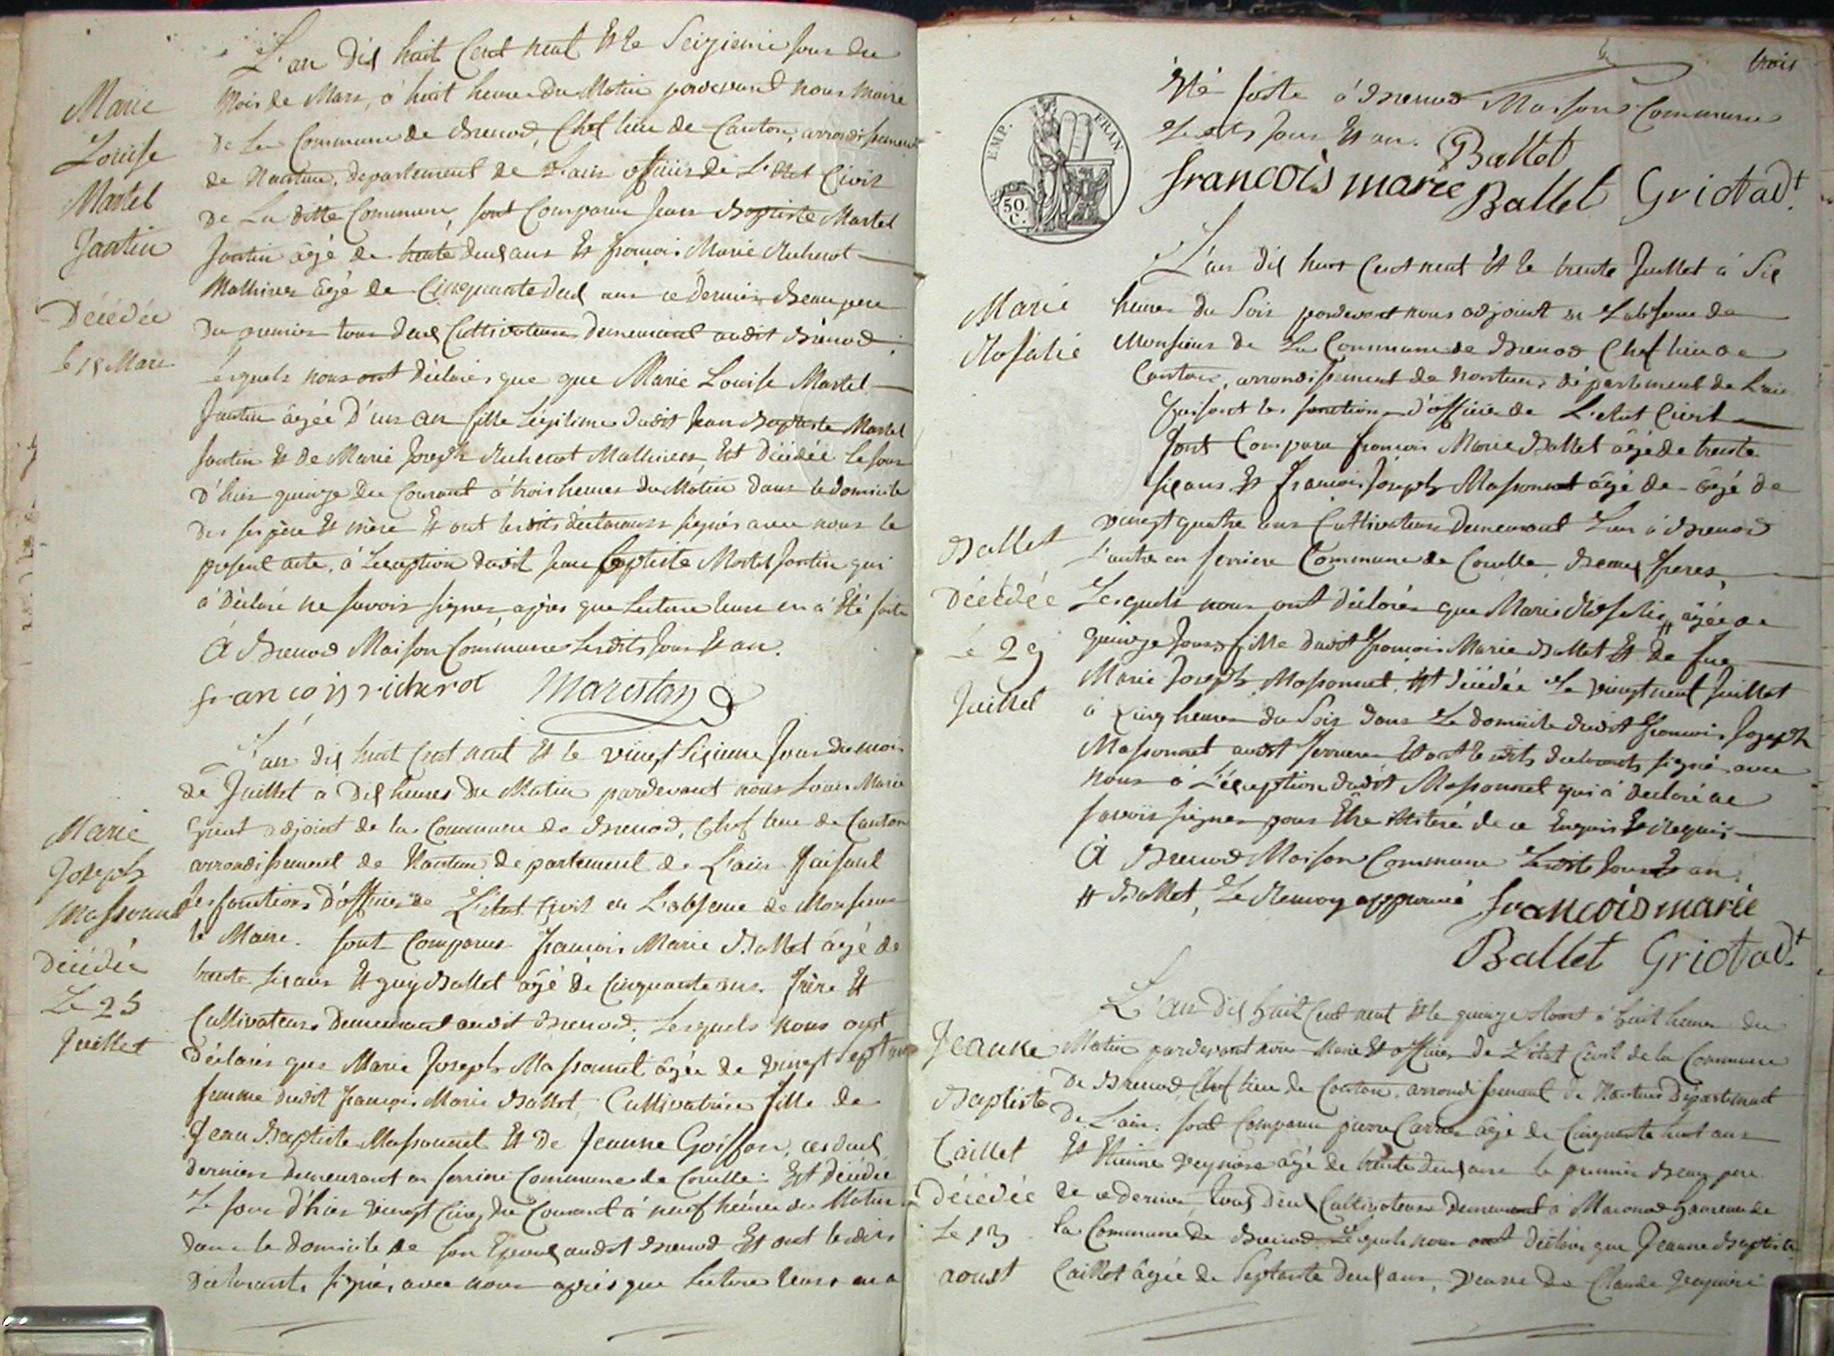 L'an dix huit Cent neuf Et le Seizieme Jour du
Marie
Louise
Martel
Jantin
Décédée
le 15 Mars
Mois de Mars, à huit heures du Matin pardevant nous Maire
de La Commune de Brenod, Chef lieu de Canton, arrondissement
de Nantua, département de L'ain officier de L'Etat Civil
de La ditte Commune, sont Comparus Jean Baptiste Martel
Jantin âgé de trente deux ans Et françois Marie Richerot
Mathieux âgé de Cinquante deux ans ce dernier Beau pere
du premier tous deux Cultivateurs demeurant audit Brénod
lesquels nous ont Déclarés que que Marie Louise Martel
Jantin âgée D'un an fille Légitime dudit Jean Baptiste Martel
Jantin Et de Marie Joseph Richerot Mathieux, Est Décédée Le Jour
D'hier quinze du Courant à trois heures du Matin dans le domicile
des ses père Et mère Et ont lesdits déclarants signés avec nous le
présent acte, à L'exception dudit Jean Baptiste Martel Jantin qui
à Déclaré ne savoir signer, après que Lecture leur en à Eté faite
à Brenod Maison Commune Lesdits Jour Et an.
françois richerot Marestan
L'an dix huit Cent neuf Et le vingt Sixieme Jour du mois
Marie
Joseph
Massonnet
Décédée
Le 25
Juillet
de Juillet à Dix heures du Matin pardevant nous Louis Marie
Griot adjoint de la Commune de Brenod, Chef lieu de Canton
arrondissement de Nantua, département de L'ain faisant
les fonctions D'officier de L'état Civil en L'absence de Monsieur
le Maire. sont Comparus François Marie Ballet âgé de
trente six ans Et guy Ballet âgé de Cinquante ans frère Et
Cultivateurs demeurant audit Brenod. Lesquels nous ont
Déclarés que Marie Joseph Massonnet âgée de vingt Sept ans
femme dudit françois Marie Ballet, Cultivatrice fille de
Jean Baptiste Massonnet Et de Jeanne Goiffon, ces deux
derniers demeurant en ferriere Commune de Corcelle. Est décédée
Le Jour d'hier vingt Cinq du Courant à neuf heures du Matin
dans le domicile de son Epoux audit Brenod Et ont lesdits
déclarants signés avec nous après que Lecture leur en a
trois
Eté faite à Brenod Maison Commune
Lesdits Jour Et an. Ballet
EMP. FRAN
50 C.
françois marie Ballet Griot adt.
L'an dix huit Cent neuf Et le trente Juillet à Six
Marie
Rosalie
Ballet
Décédée
Le 29
Juillet
heures du Soir pardevant nous adjoint en L'absence de
Monsieur de La Commune de Brenod Chef lieu de
Canton, arrondissement de Nantua, département de L'ain
faisant les fonctions d'officier de L'etat Civil
sont Comparu françois Marie Ballet âgé de trente
six ans Et françois Joseph Massonnet âgé de âgé de
vingt quatre ans Cultivateurs demeurant L'un à Brenod
L'autre en ferriere Commune de Corcelle, Beaux freres,
Lesquels nous ont déclarés que Marie Rosalie # âgée de
quinze Jours fille dudit françois Marie Ballet Et de fue
Marie Joseph Massonnet, Est décédée Le vingt neuf Juillet
à Cinq heures du Soir dans Le domicile dudit François Joseph
Massonnet audit ferriere Et ont lesdits déclarants signé avec
nous à L'éxception dudit Massonnet qui à déclaré ne
savoir signer pour Etre de ce Enquis Et Requis
à Brenod Maison Commune Lesdits Jour Et an.
# Ballet, Le Renvoy approuvé françois marie
Ballet Griot adt.
L'an dix huit Cent neuf Et le quinze Aoust à huit heures du
Jeanne
Baptiste
Caillet
Décédée
Le 13
aoust
Matin pardevant nous Maire Et officier de L'état Civil de la Commune
de Brenod, Chef lieu de Canton, arrondissement de Nantua Département
de L'ain. sont Comparu pierre Carrier âgé de Cinquante huit ans
Et Etienne âgé de trente deux ans le premier Beau pere
de ce dernier, tous deux Cultivateurs demeurant à Macconod hameau de
la Commune de Brenod Lesquels nous ont déclarés que Jeanne Baptiste
Caillet âgée de Septante deux ans, veuve de Claude